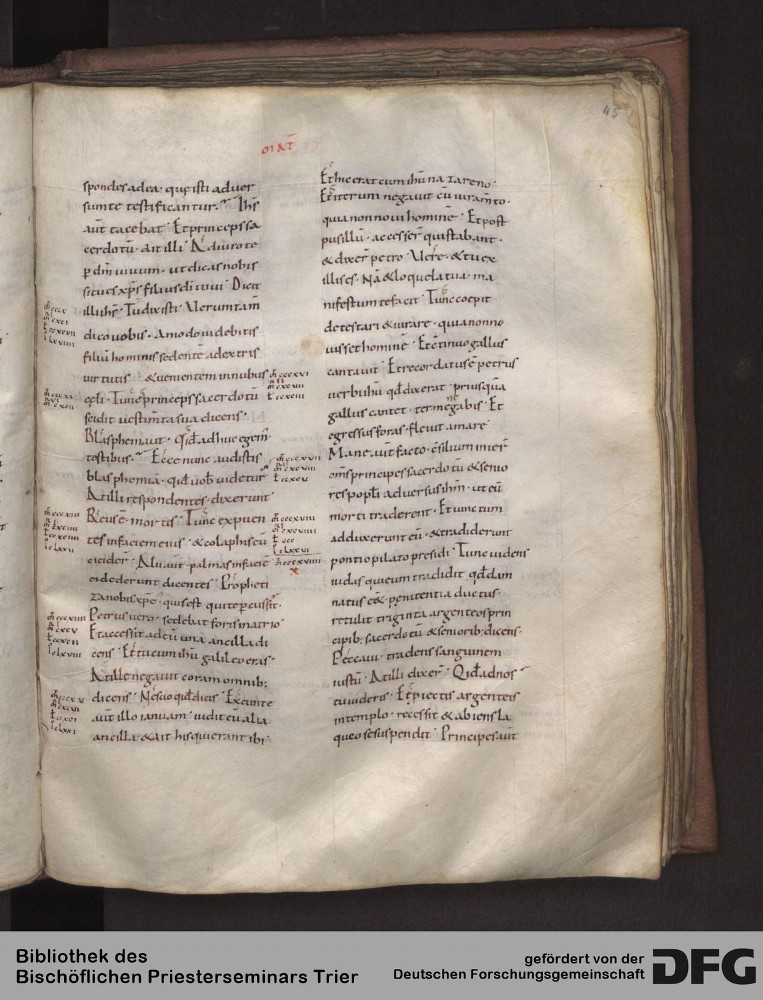 45
MAT
spondes adea· quę isti aduer
sumte testificantur· Ihs
aut̄ tacebat· Et princeps sa
cerdotū· ait illi· Adiuro te
p dm̄ uiuum· ut dicas nobis
si tu es xp̄s filius di uiui· Dicit
illi ihs̄· Tu dixisti· Uerumtam̄
dico uobis· Amodo uidebitis
filiū hominis sedentē adextris
uirtutis & uenientem innubib
cęli· Tunc princeps sacerdotū
scidit uestimta sua dicens·
Blasphemauit· Qid adhuc egem̄
testibus· Ecce nunc audistis
blasphemiā· qd uob̄ uidetur
At illi respondentes· dixerunt
Reus ē mortis· Tunc expuen
tes infaciem eius· & colaphis eū
ceciderr̄· Alii aut̄· palmas infaciē
ei dederunt dicentes· Propheti
za nobis xp̄e· quis est qui te percussit·
Petrus uero· sedebat foris inatrio·
Et accessit ad eū una ancilla di
cens· Et tu cum ihū galileo eras·
At ille negauit coram omnib;
dicens· Nescio quid dicis· Exeunte
aut̄ illo ianuam· uidit eū alia
ancilla· & ait his qui erant ibi·
Et hic erat cum ihū nazareno·
Et iterum negauit cū iuram̄to·
quia non noui hominē· Et post
pusillū· accesser̄ qui stabant·
& dixer̄ petro· Uere· & tu ex
illis es· Nā & loquela tua· ma
nifestum te facit· Tunc coepit
detestari & iurare· quia non no
uisset hominē· Et cntinuo gallus
cantauit· Et recordatus ē petrus
uerbi ihū qd dixerat· priusquā
gallus cantet· ter me negabis· Et
egressus foras· fleuit amare·
Mane aut̄ facto· csilium inier̄
om̄s principes sacerdotū & senio
res popli aduersus ihm̄· ut eū
morti traderent· Et uinctum
adduxerunt eū· & tradiderunt
pontio pilato presidi· Tunc uidens
iudas qui eum tradidit qd dam
natus e&· penitentia ductus·
retulit triginta argenteos prin
cipib; sacerdotū & seniorib; dicens·
Peccaui· tradens sanguinem
iustū· At illi dixer̄· Qid ad nos
tu uideris· Et piectis argenteis
in templo· recessit & abiens la
queo se suspendit· Principes aut̄
Bibliothek des
Bischöflichen Priesterseminars Trier
gefördert von der
Deutschen Forschungsgemeinschaft
DFG